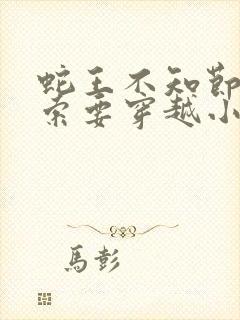 蛇王不知節
索要穿越小
馬彭